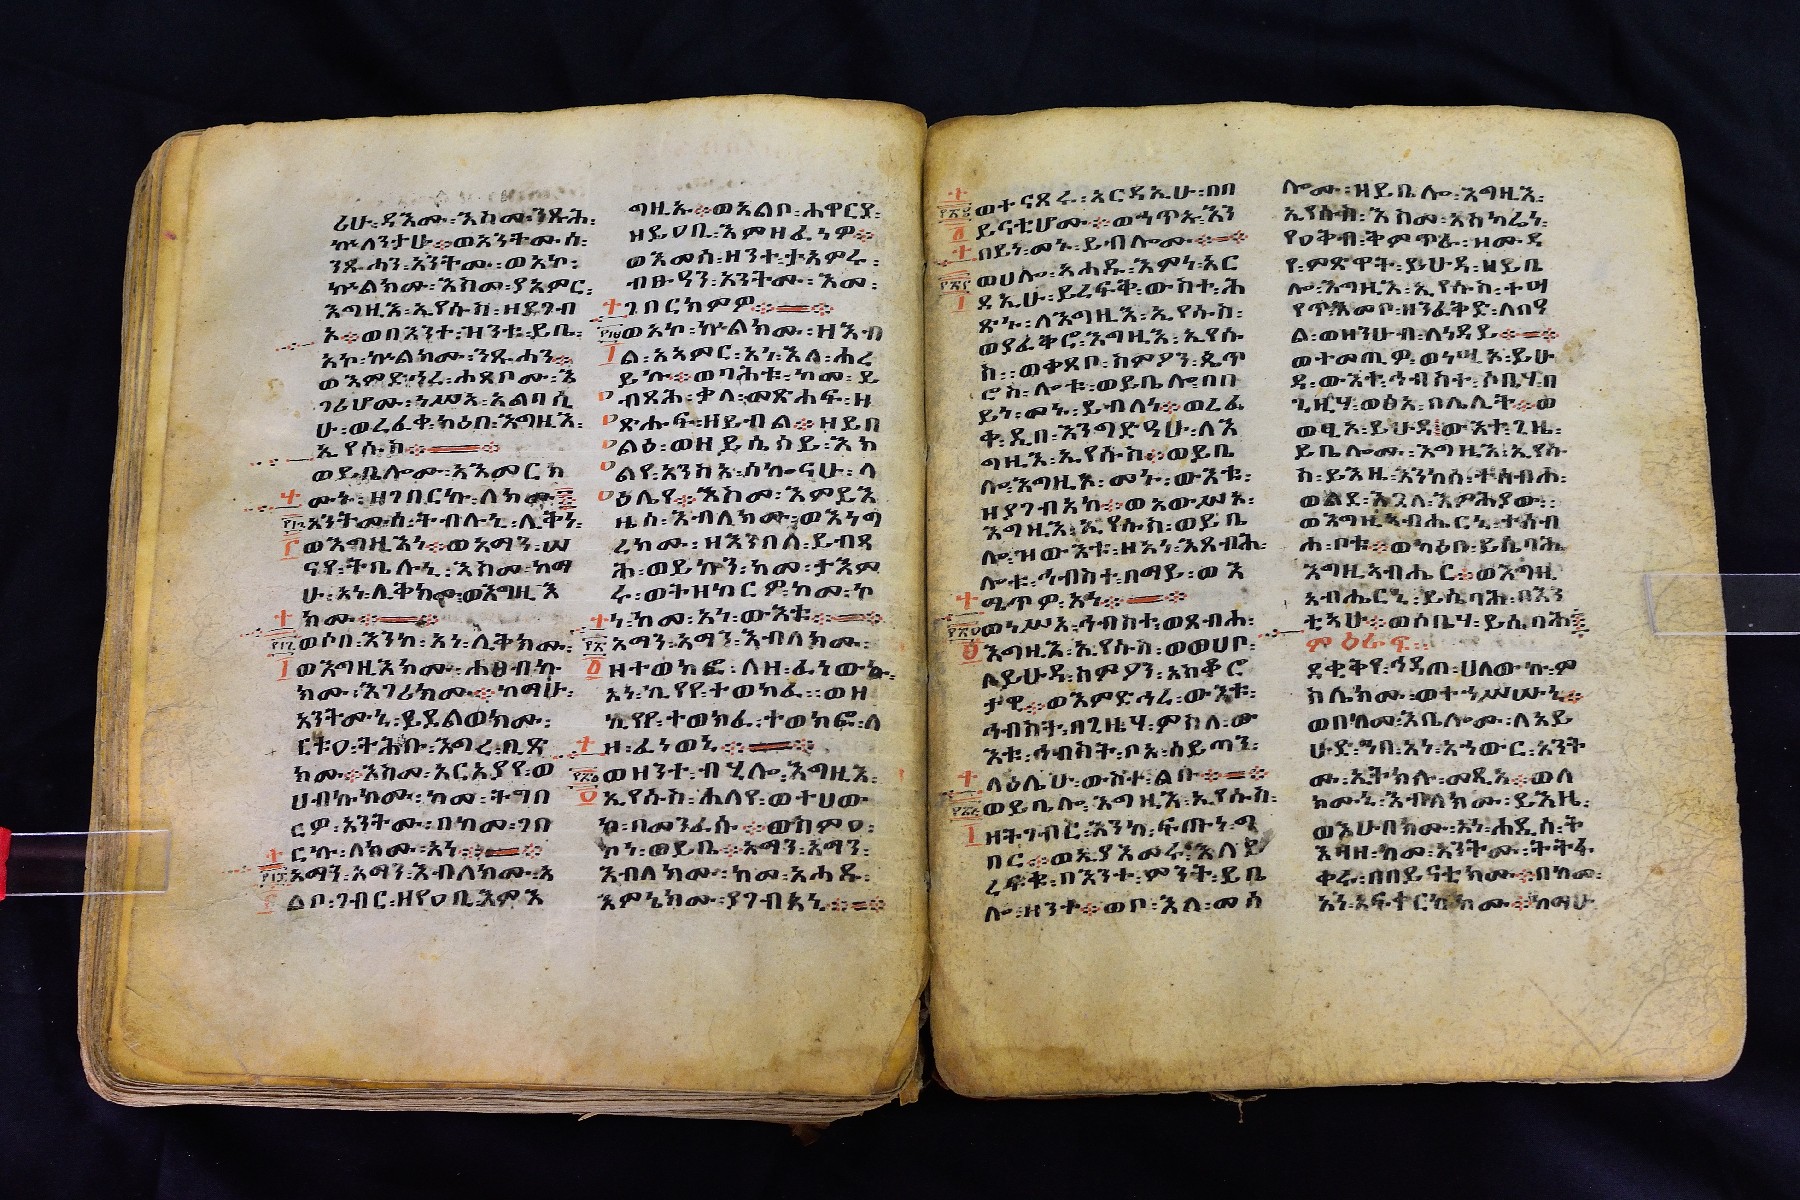 ሪሁ፡ዳእሙ፡እስመ፡ንጹሕ፡
ኵለንታሁ፡ወአንትሙሰ፡
ንጹሓን፡አንትሙ፡ወአኮ፡
ኵልክሙ፡እስመ፡ያአምር፡
እግዚእ፡ኢየሱስ፡ዘይገብ
ኦ፡ወበእንተ፡ዝንቱ፡ይቤ፡
አኮ፡ኵልክሙ፡ንጹሓን
ወእምድኅረ፡ሐጸቦሙ፡እ
ገሪሆሙ፡ነሥአ፡አልባሲ
ሁ፡ወረፈቀ፡ካዕበ፡እግዚእ፡
ኢየሱስ
ወይቤሎሙ፡አእመርክ
ሙኑ፡ዘገበርኩ፡ለክሙ
አንትሙሰ፡ትብሉኒ፡ሊቅነ፡
ወእግዚእነ፡ወአማን፡ሠ
ናየ፡ትቤሉኒ፡እስመ፡ከማ
ሁ፡አነ፡ሊቅክሙ፡ወእግዚእ
ክሙ
ወሶበ፡እንከ፡አነ፡ሊቅክሙ፡
ወእግዚእክሙ፡ሐፀብኩ
ክሙ፡እገሪክሙ፡ከማሁ፡
አንትሙኒ፡ይደልወክሙ፡
ርቱዐ፡ትሕፁ፡እግረ፡ቢጽ
ክሙ፡እስመ፡አርአያየ፡ወ
ሀብኩክሙ፡ከመ፡ትግበ
ርዎ፡አንትሙ፡በከመ፡ገበ
ርኩ፡ለክሙ፡አነ
አማን፡አማን፡እብለክሙ፡አ
ልቦ፡ገብር፡ዘየዐቢ፡እምእ
ግዚኡ፡ወአልቦ፡ሐዋርያ፡
ዘይዐቢ፡እምዘፈነዎ
ወእመሰ፡ዘንተ፡ታአምሩ፡
ብፁዓን፡አንትሙ፡እመ፡
ገበርክምዎ
ወአኮ፡ኵልክሙ፡ዘእብ
ል፡አአምር፡አነ፡እለ፡ሐረ
ይኩ፡ወባሕቱ፡ከመ፡ይ
ብጻሕ፡ቃለ፡መጽሐፍ፡ዘ
ጽሑፍ፡ዘይብል፡ዘይበ
ልዕ፡ወዘይሴሰይ፡እክ
ልየ፡አንሥአ፡ሰኰናሁ፡ላ
ዕሌየ፡እስመ፡እምይእ
ዜሰ፡እብለክሙ፡ወእነግ
ረክሙ፡ዘእንበለ፡ይብጻ
ሕ፡ወይኩን፡ከመ፡ታእም
ሩ፡ወትዘከርዎ፡ከመ፡ኮ
ነ፡ከመ፡አነ፡ውእቱ
አማን፡አማን፡እብለክሙ፡
ዘተወክፎ፡ለዘ፡ፈነውኩ፡
አነ፡ኪየየ፡ተወክፈ፡ወዘ
ኪየየ፡ተወክፈ፡ተወክፎ፡ለ
ዘ፡ፈነወኒ
ወዘንተ፡ብሂሎ፡እግዚእ፡
ኢየሱስ፡ሐለየ፡ወተሀው
ከ፡በመንፈሱ፡ወስምዐ፡
ኮነ፡ወይቤ፡አማን፡አማን፡
እብለክሙ፡ከመ፡አሐዱ፡
እምኔክሙ፡ያገብአኒ
ወተናጸሩ፡አርዳኢሁ፡በበ
ይናቲሆሙ፡ወኀጥኡ፡እን
በይነ፡መኑ፡ይብሎሙ
ወሀሎ፡አሐዱ፡እምነ፡አር
ዳኢሁ፡ይረፍቅ፡ውስተ፡ሕ
ጽኑ፡ለእግዚእ፡ኢየሱስ፡
ወያፈቅሮ፡እግዚእ፡ኢየሱ
ስ፡ወቀጸቦ፡ስምዖን፡ጴጥ
ሮስ፡ሎቱ፡ወይቤሎ፡በበ
ይነ፡መኑ፡ይብለነ፡ወረፈ
ቀ፡ዲበ፡እንግድዓሁ፡ለእ
ግዚእ፡ኢየሱስ፡ወይቤ
ሎ፡እግዚእ፡መኑ፡ውእቱ፡
ዘያገብአከ፡ወአውሥአ፡
እግዚእ፡ኢየሱስ፡ወይቤ
ሎ፡ዝውእቱ፡ዘአነ፡እጸብሕ፡
ሎቱ፡ኅብስተ፡በማይ፡ወእ
ሜጥዎ፡አነ
ወነሥአ፡ኅብስተ፡ወጸብሐ፡
እግዚእ፡ኢየሱስ፡ወወሀቦ፡
ለይሁዳ፡ስምዖን፡አስቆሮ
ታዊ፡ወእምድኅረ፡ውእቱ፡
ኅብስት፡በጊዜሃ፡ምስለ፡ው
እቱ፡ኅብስት፡ቦአ፡ሰይጣን፡
ላዕሌሁ፡ውስተ፡ልቡ
ወይቤሎ፡እግዚእ፡ኢየሱስ፡
ዘትገብር፡እንከ፡ፍጡነ፡ግ
በር፡ወኢያእመሩ፡እለይ
ረፍቁ፡በእንተ፡ምንት፡ይቤ
ሎ፡ዘንተ፡ወቦ፡እለ፡መሰ
ሎሙ፡ዘይቤሎ፡እግዚእ፡
ኢየሱስ፡እስመ፡አስካሬነ፡
የዐቅብ፡ቅምጥራ፡ዝሙዳ
የ፡ምጽዋት፡ይሁዳ፡ዘይቤ
ሎ፡እግዚእ፡ኢየሱስ፡ተሣ
የጥ፡እመቦ፡ዘንፈቅድ፡ለበዓ
ል፡ወዘንሁብ፡ለነዳይ
ወተመጢዎ፡ወነሢአ፡ይሁ
ዳ፡ውእተ፡ኅብስተ፡ሶቤሃ፡በ
ጊዜሃ፡ወፅአ፡በሌሊት፡ወ
ወፂአ፡ይሁዳ፡ውእተ፡ጊዜ፡
ይቤሎሙ፡እግዚእ፡ኢየሱ
ስ፡ይእዜ፡እንከሰ፡ተሰብሐ፡
ወልደ፡እጓለ፡እምሕያው፡
ወእግዚአብሔርኒ፡ተሰብ
ሐ፡ቦቱ፡ወካዕበ፡ይሴባሕ
እግዚአብሔር፡ወእግዚ
አብሔርኒ፡ይሴባሕ፡በእን
ቲአሁ፡ወሶቤሃ፡ይሴባሕ
ምዕራፍ
ደቂቅየ፡ኅዳጠ፡ሀለውኩ፡ም
ስሌክሙ፡ወተኀሥሡኒ
ወበከመ፡እቤሎሙ፡ለአይ
ሁድ፡ኀበ፡አነ፡አሐውር፡አንት
ሙ፡ኢትክሉ፡መጺአ፡ወለ
ክሙኒ፡እብለክሙ፡ይእዜ፡
ወእሁበክሙ፡አነ፡ሐዲሰ፡ት
እዛዘ፡ከመ፡አንትሙ፡ትትፋ
ቀሩ፡በበይናቲክሙ፡በከመ፡
አነ፡አፍቀርኩክሙ፡ከማሁ